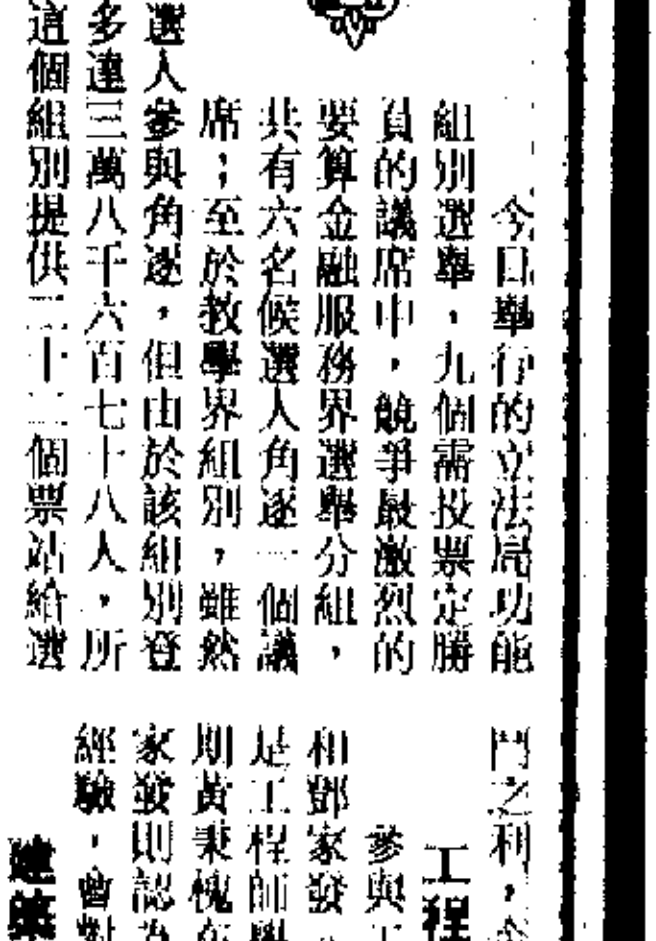 今日舉行的立法局功能
組別選舉，九個需投票定勝
負的議席中，競爭最激烈的
要算金融服務界選舉分組，
共有六名候選人角逐一個議
席；至於教學界組別，雖然
選人參與角逐，但由於該組別登
多達三萬八千六百七十八人，所
這個組別提供二十二個票站給選
鬥之利，
工程
參與工
和鄧家發，
是工程師學
期黃秉槐在
家發則認為
經驗，會對
建築